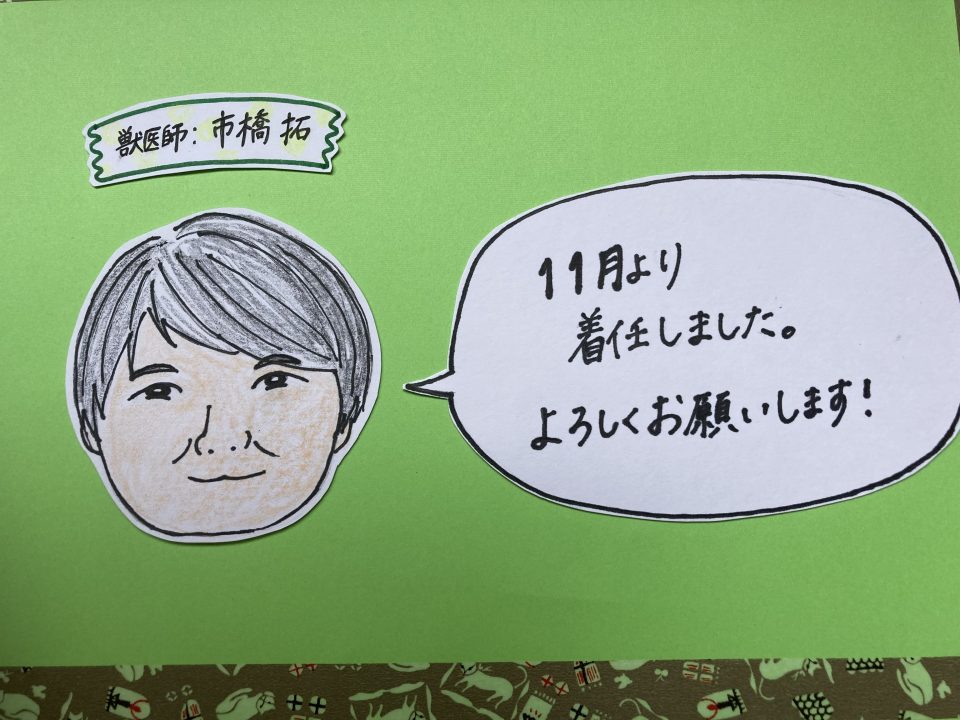 獣医師：市橋 拓
11月より
着任しました。
よろしくお願いします！